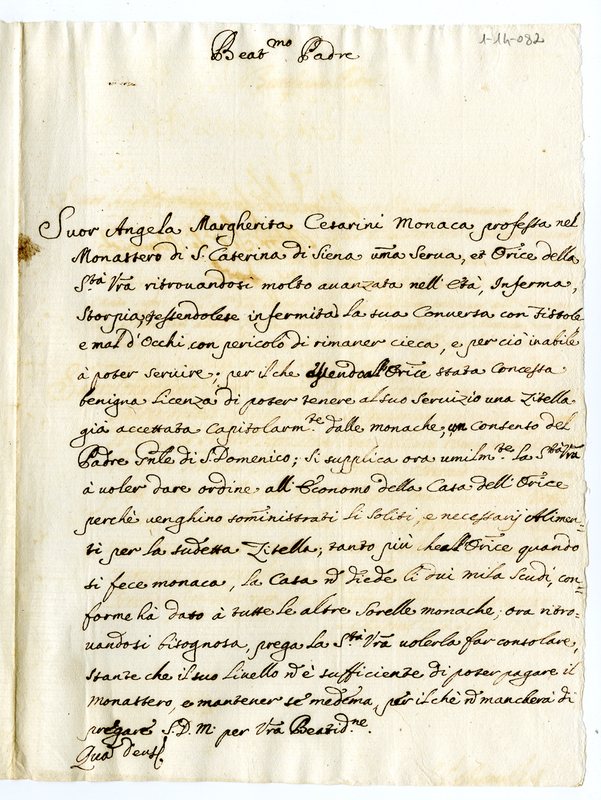 1-14-082
Beat.mo Padre
Suor Angela Margherita Cesarini Monaca professa nel
Monastero di S. Caterina di Siena uma Serua, et Orice della
S.tà Vra ritrovandosi molto avanzata nell'età, Inferma,
Storpia, essendolese infermità la sua Conversa con fistole
e mal d'Occhi con pericolo di rimaner cieca, e per ciò inabile
à poter servire; per il che essendo all'Orice stata Concessa
benigna licenza di poter tenere al suo Servizio una Zitella
già accettata Capitolarm.te dalle monache, con Consenso del
Padre Gnle di S. Domenico; si supplica ora umilm.te la S.tà Vra
à voler dare ordine all'Economo della Casa dell'Orice
perchè venghino somministrati li soliti, e necessarij Alimen-
ti per la sudetta Zitella; tanto più che all'Orice quando
si fece monaca, la Casa nõ diede li dui mila Scudi, con=
forme hà dato à tutte le altre Sorelle monache; ora ritro=
vandosi bisognosa, prega la S.tà Vra volerla far consolare,
stante che il suo Livello nõ è sufficiente di poter pagare il
Monastero, e mantener sè medema, per il chè nõ mancherà di
pregare S.D.M. per Vra Beatid.ne.
Qua Deus